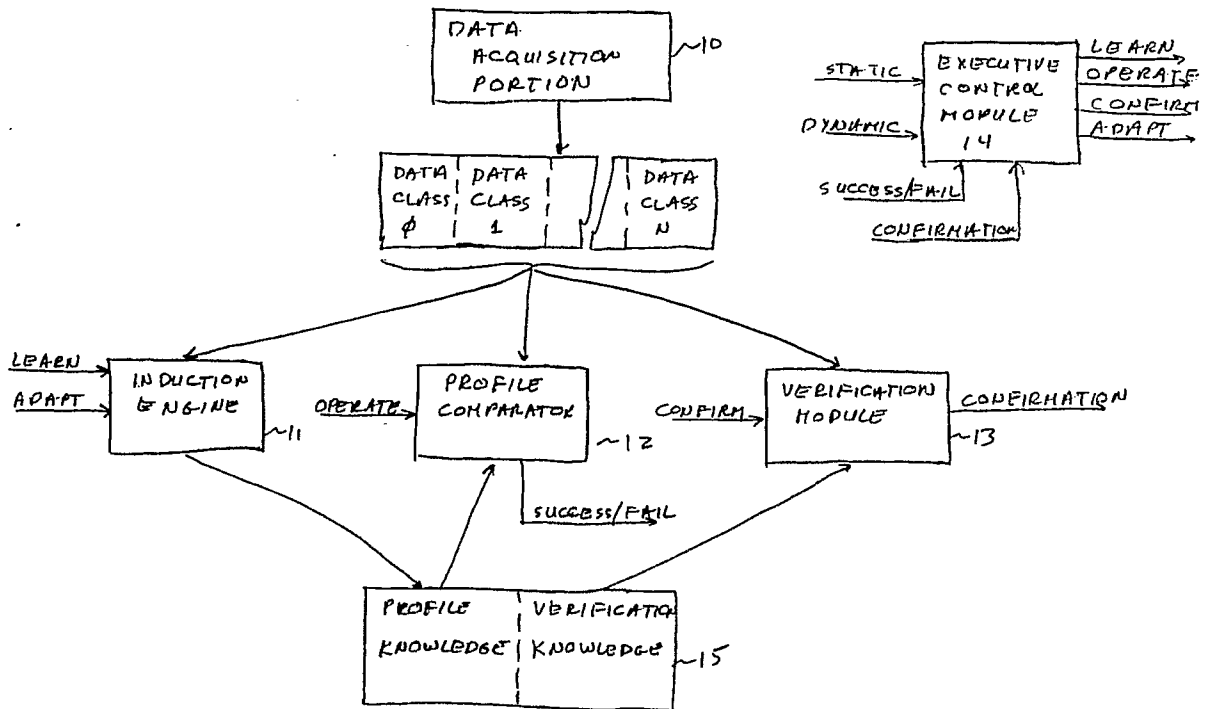 DATA
ACQUISITION
PORTION
~10
STATIC
DYNAMIC
EXECUTIVE
CONTROL
MODULE
14
LEARN
OPERATE
CONFIRM
ADAPT
SUCCESS/FAIL
CONFIRMATION
DATA
CLASS
φ
DATA
CLASS
1
DATA
CLASS
N
LEARN
ADAPT
INDUCTION
ENGINE
~11
OPERATE
PROFILE
COMPARATOR
~12
SUCCESS/FAIL
CONFIRM
VERIFICATION
MODULE
~13
CONFIRMATION
PROFILE
KNOWLEDGE
VERIFICATION
KNOWLEDGE
~15